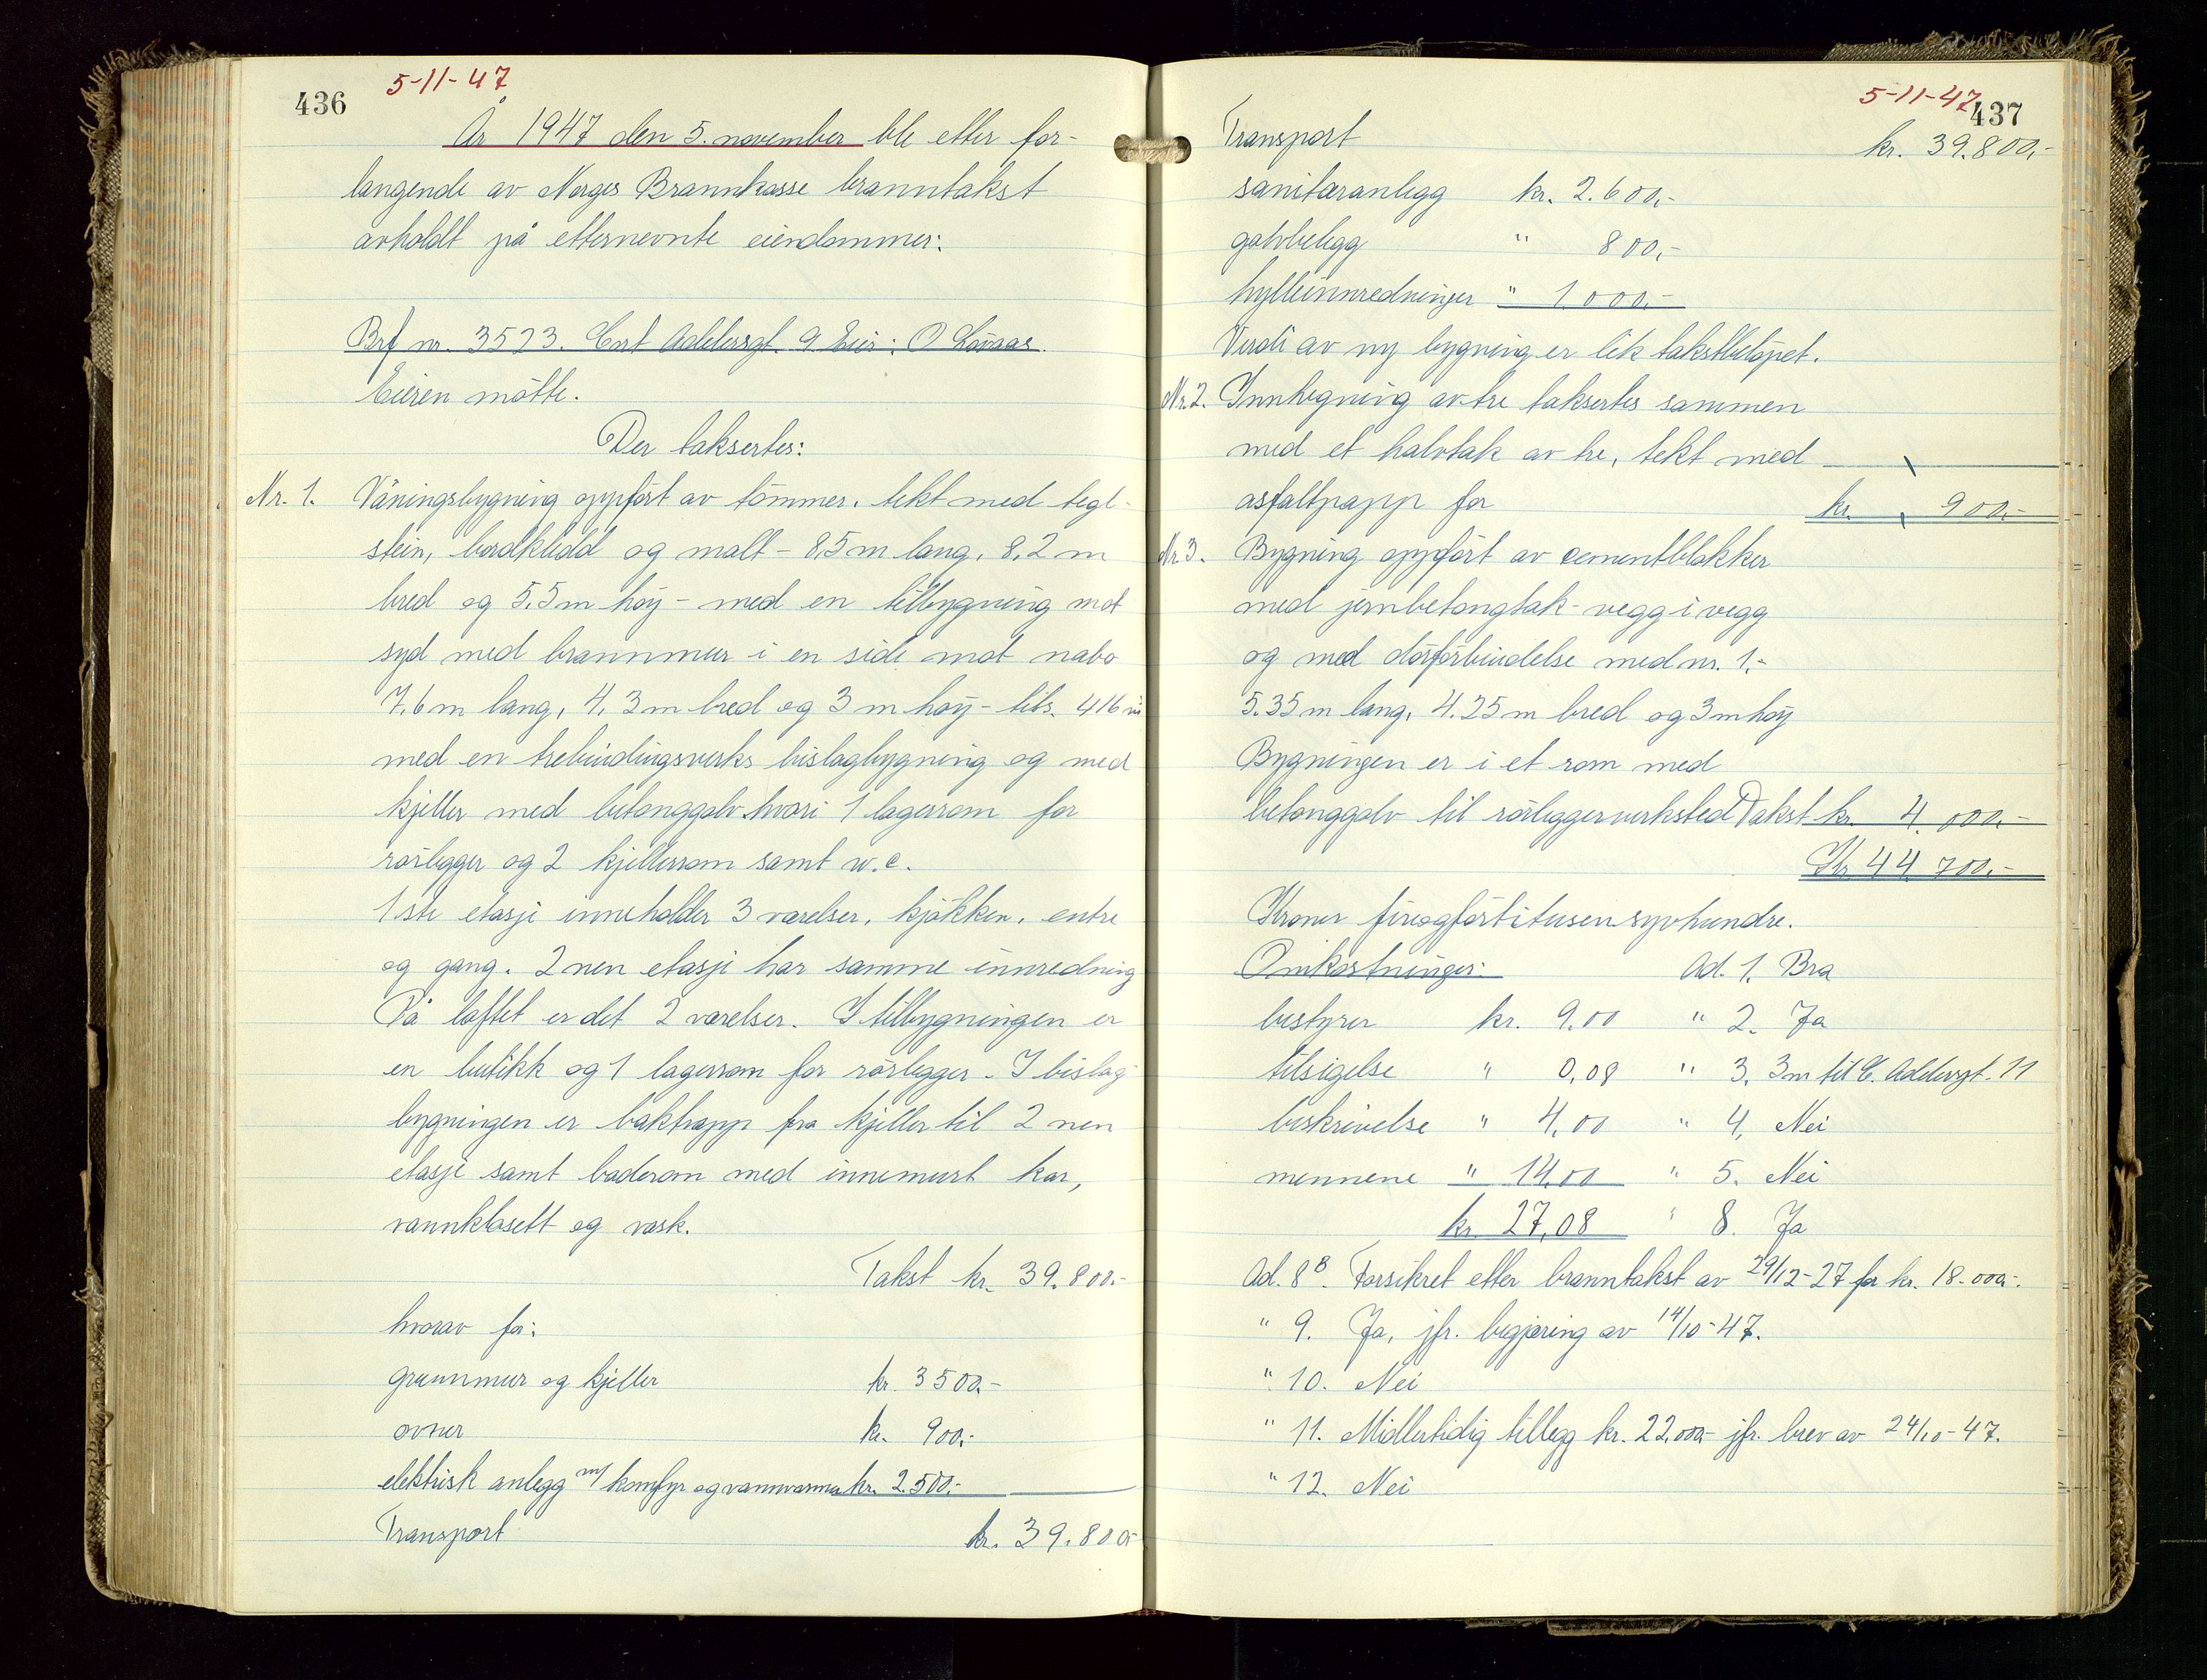 436
5-11-47
År 1947 den 5. november ble etter for-
langende av Norges Brannkasse branntakst
avholdt på etternevnte eiendommer:
Brf nr. 3523. Cort Adelersgt. 9 Eier: O Lövaas.
Eieren mötte.
Der taksertes:
Nr. 1. Våningsbygning oppfört av tömmer, tekt med tegl-
stein, bordkledd og malt - 8,5 m lang, 8,2 m
bred og 5,5 m höy - med en tilbygning mot
syd med brannmur i en side mot nabo
7,6 m lang, 4,3 m bred og 3 m höy - tils. 416 m³
med en trebindingsverks bislagbygning og med
kjeller med betonggolv hvori 1 lagerrom for
rörlegger og 2 kjellerrom samt w.c.
1 ste etasje inneholder 3 værelser, kjökken, entre
og gang. 2 nen etasje har samme innredning
På loftet er det 2 værelser. I tilbygningen er
en butikk og 1 lagerrom for rörlegger. I bislag
bygningen er baktrapp fra kjeller til 2 nen
etasje samt baderom med innemurt kar,
vannklosett og vask.
Takst kr. 39.800.-
hvorav for:
grunnmur og kjeller kr. 3500.-
ovner kr. 900.-
elektrisk anlegg m/ komfyr og vannvarmer kr. 2.500.-
Transport kr. 39.800.-
5-11-47
437
Transport kr. 39.800,-
sanitæranlegg kr. 2.600,-
golvbelegg " 800,-
hylleinnredninger " 1000.-
Verdi av ny bygning er lik takstbelöpet.
Nr. 2. Innhegning av tre taksertes sammen
med et halvtak av tre, tekt med
asfaltpapp for kr. 900.-
Nr. 3. Bygning oppfört av cementblokker
med jernbetongtak - vegg i vegg
og med dörforbindelse med nr. 1. -
5.35 m lang, 4.25 m bred og 3 m höy
Bygningen er i et rom med
betonggolv til rörleggerverksted Takst kr. 4.000.-
Kr. 44.700.-
Kroner fireogförtitusensyvhundre.
Omkostninger: Ad. 1. Bra
bestyrer kr. 9,00 " 2. Ja
tilsigelse " 0,08 " 3. 3 m til C. Adelersgt. 11
beskrivelse " 4,00 " 4. Nei
mennene " 14,00 " 5. Nei
kr. 27,08 " 8. Ja
Ad. 8 B. Forsikret etter branntakst av 29/12-27 for kr. 18.000.-
" 9. Ja, jfr. begjæring av 14/10-47.
" 10. Nei
" 11. Midlertidig tillegg kr. 22.000.- jfr. brev av 24/10-47.
" 12. Nei